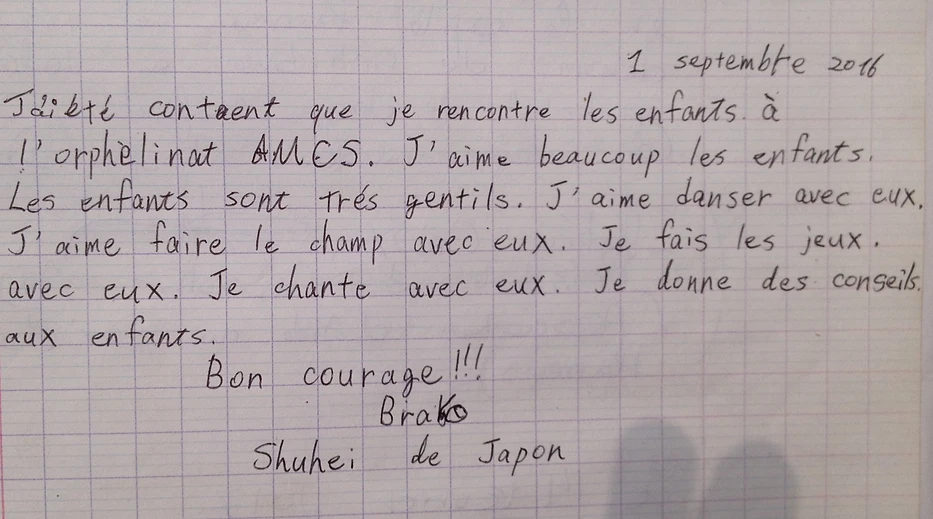 1 septembre 2016
J'ai été content que je rencontre les enfants. à
l'orphèlinat AMES. J'aime beaucoup les enfants.
Les enfants sont trés gentils. J'aime danser avec eux.
J'aime faire le champ avec eux. Je fais les jeux.
avec eux. Je chante avec eux. Je donne des conseils.
aux enfants.
Bon courage!!!
Shuhei de Japon